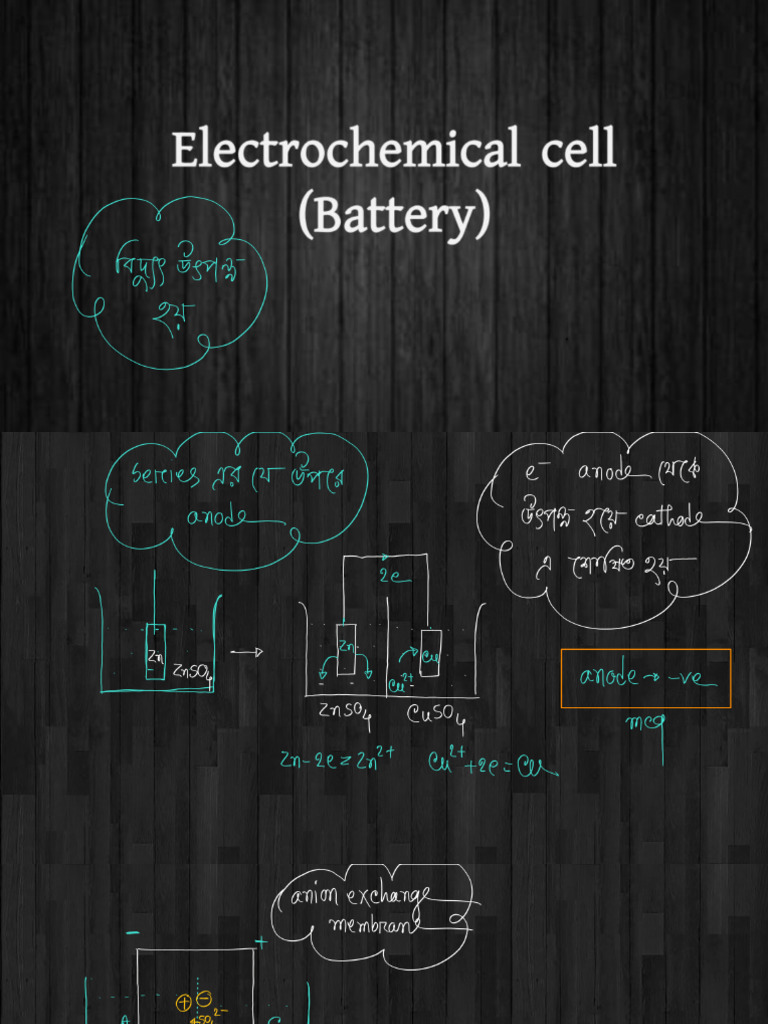 Electrochemical cell
(Battery)
বিদ্যুৎ উৎপন্ন
হয়
series এর যে উপরে
anode
e⁻ anode থেকে
উৎপন্ন হয়ে cathode
এ শোষিত হয়
2e
Zn
ZnSO₄
Zn
Cu
Cu²⁺
ZnSO₄
CuSO₄
anode → -ve
mcq
Zn-2e=Zn²⁺
Cu²⁺+2e=Cu
anion exchange
membrane
-
+
+ -
SO₄²⁻
A
C